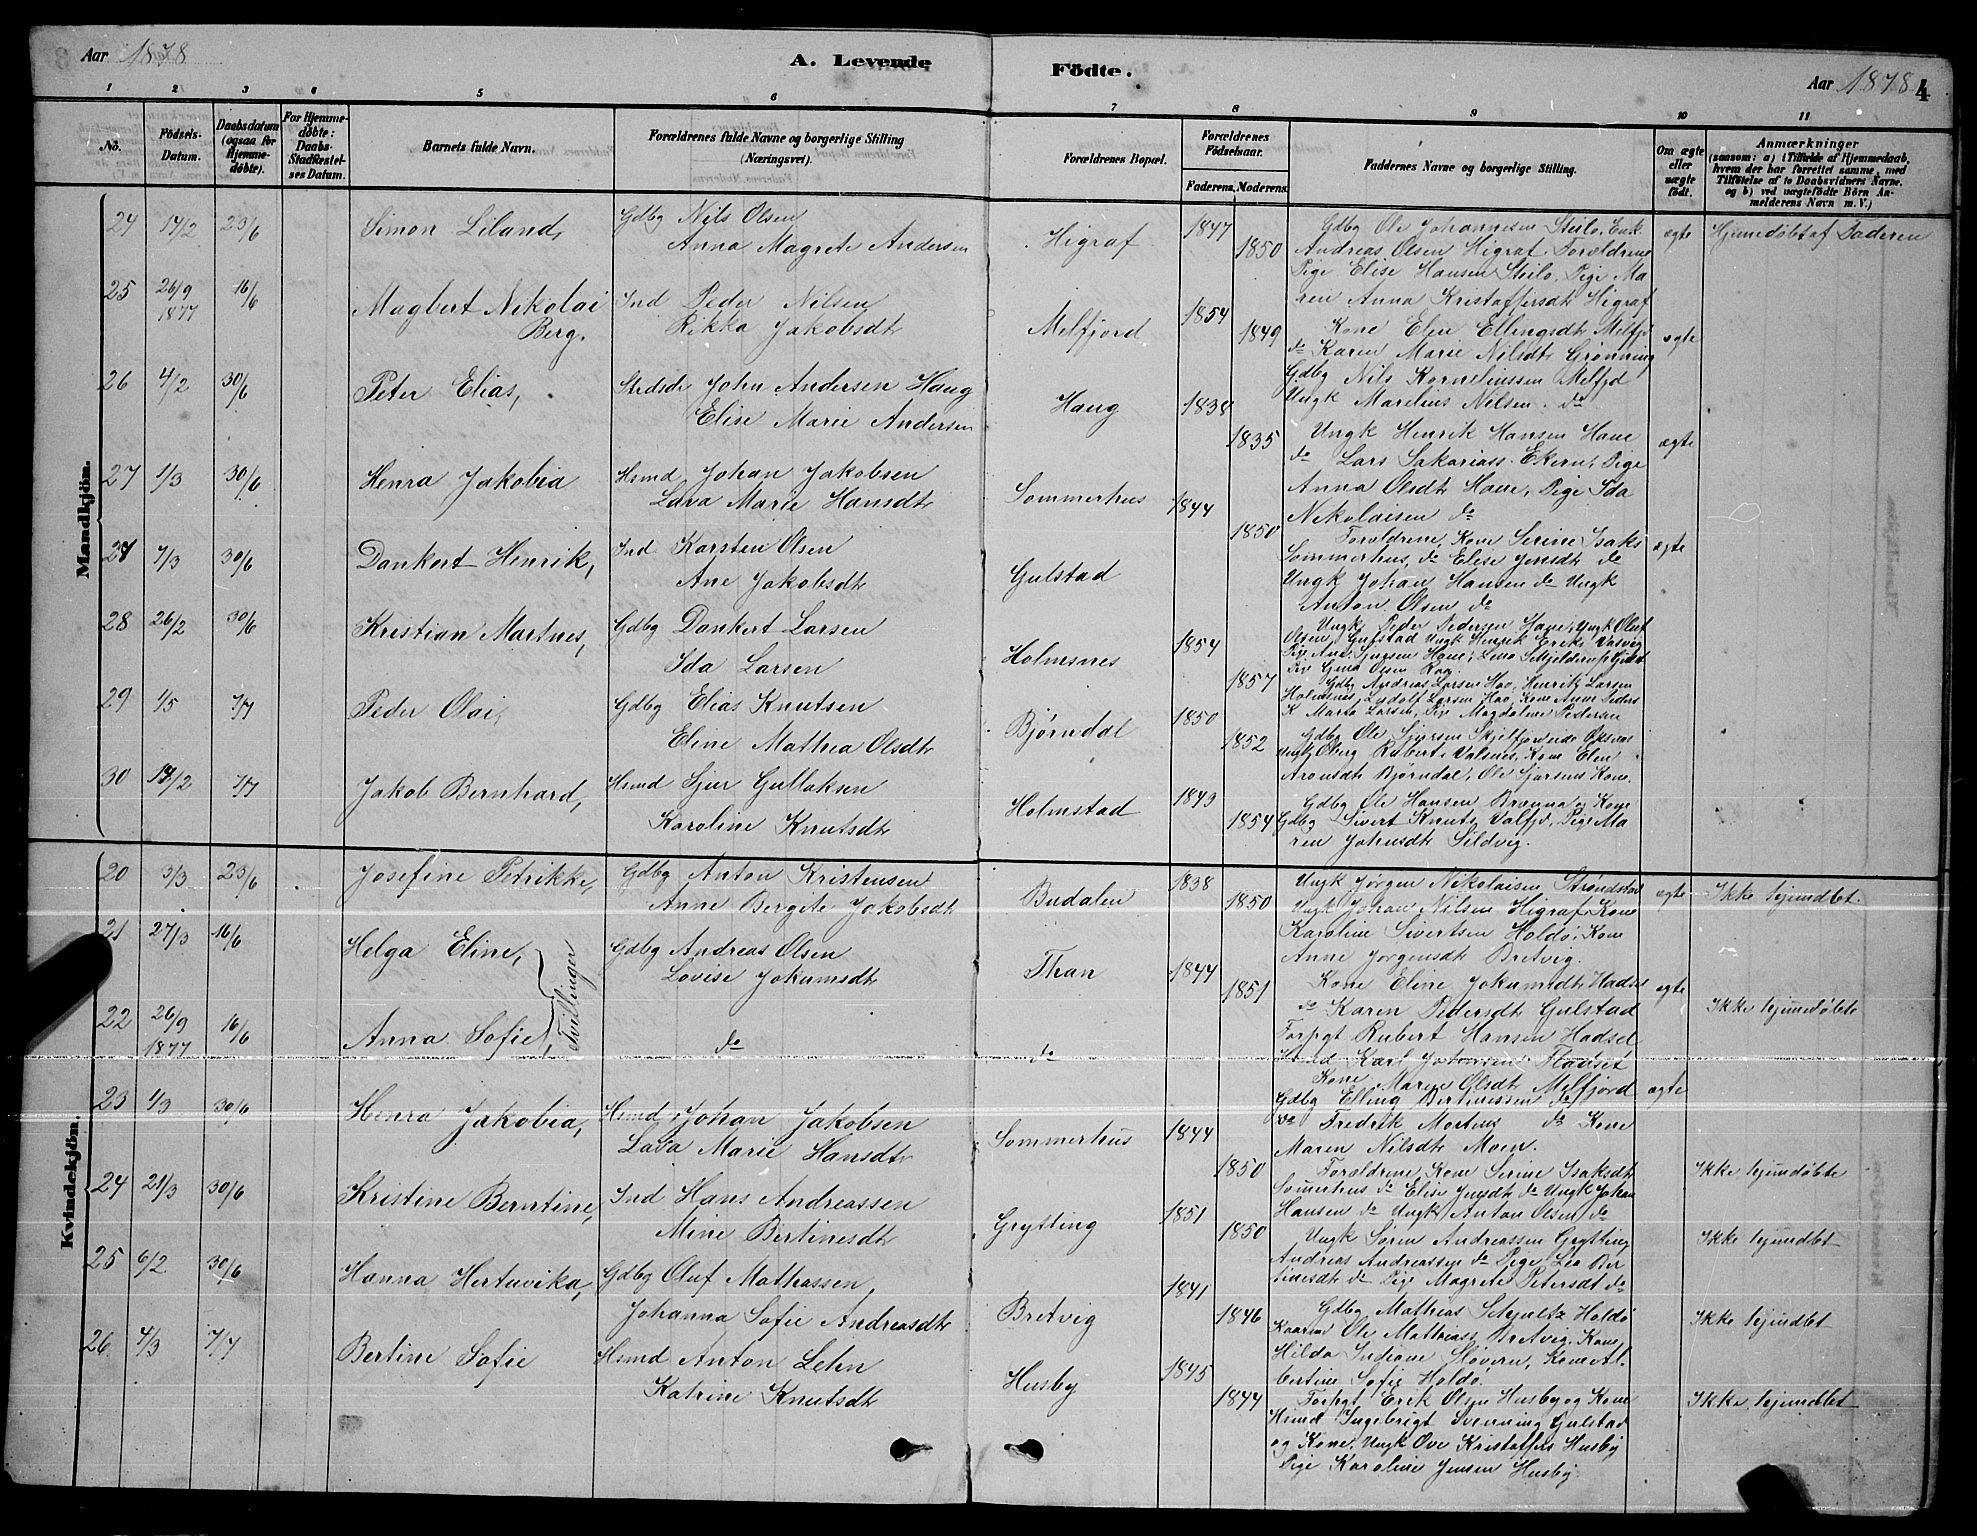 Aar 1878
A. Levende
Födte.
Aar 1878
4
1 2 3 4 5 6 7 8 9 10 11
No.
Födsels-Datum.
Daabsdatum (ogsaa for Hjemmedöbte).
For Hjemmedöbte: Daabs-Stadfæstelses Datum.
Barnets fulde Navn.
Forældrenes fulde Navne og borgerlige Stilling (Næringsvei).
Forældrenes Bopæl.
Forældrenes Födselsaar.
Faderens. Moderens.
Faddernes Navne og borgerlige Stilling.
Om ægte eller uægte født.
Anmærkninger
(saasom: a) i Tilfælde af Hjemmedaab, hvem der har forrettet samme, med Tilföielse af to Daabsvidners Navne, og b) ved uægtefödte Börn Anmelderens Navn m. V.)
Mandkjön.
24 17/2 23/6 Simon Liland, Gdbg Nils Olsen
Anna Magrete Andersen
Higraf 1847 1850
Gdbg Ole Johannesen Steilo, Enk.
Andreas Olsen Higraf Forældrene
Pige Elise Hansen Steilo, Pige Ma
ren Anna Kristoffersdtr Higraf
ægte Hjemedøbt af Faderen
25 26/9 1877 16/6 Magbert Nikolai
Berg.
Ind Peder Nilsen
Rikka Jakobsdtr
Melfjord 1854 1849
Kone Elen Ellingsdtr Melfjd
do Karen Marie Nilsdtr Grønning
Gdbg Nils Korneliussen Melfjd
Ungk Marelius Nilsen do
ægte
26 4/2 30/6 Peter Elias, Stedsde John Andersen Haug
Elise Marie Andersen
Haug 1838 1835
Ungk Henrik Hansen Haue
do Lars Sakariass. Ekern, Pige
Anna Olsdtr Haue, Pige Ida
Nikolaisen do
ægte
27 1/3 30/6 Henra Jakobia Hsmd Johan Jakobsen
Lava Marie Hansdtr
Sommerhus 1844 1850
Forældrene, Kone Serine Isaks
Sommerhus, do Elise Jensdtr do
Ungk Johan Hansen do Ungk
Anton Olsen do
ægte
27 7/3 30/6 Dankert Henrik, Ind Karsten Olsen
Ane Jakobsdtr
Gulstad
Ungk Peder Pedersen Haue, Ungk Oluf
Olsen, Gulstad Ungk Henrik Eriks
28 26/2 30/6 Kristian Martnes, Gdbg Dankert Larsen
Ida Larsen
Holmsnes 1854 1857
Gdbg Andreas Larsen Hav, Henrik Larsen
Holmsnes, Ludolf Larsen Hav, Kone Anne Peders
K Marta Larsen, Pige Magdalene Pedersen
29 1/5 7/7 Peder Olai, Gdbg Elias Knutsen
Eline Mathea Olsdtr
Bjørndal 1850 1852
Gdbg Ole Sjursen
Arontsdtr Bjørndal, Ole Sjursens Kone.
30 17/2 7/7 Jakob Bernhard, Hsmd Sjur Gullaksen
Karoline Knutsdtr
Holmstad 1843 1854
Gdbg Ole Hansen og Kone
Gdbg Sivert Knuts Valfjd, Pige Ma
ren Johnsdtr Sildvig.
Kvindekjön.
20 3/3 23/6 Josefine Petrikke, Gdbg Anton Kristensen
Anne Bergete Jakobsdtr
Budalen 1838 1850
Ungk Jørgen Nikolaisen Strøndstad
Ungk Johan Nilsen Higraf, Kone
Karoline Sivertsen Holdø, Kone
Anne Jørgensdtr Bretvig.
ægte Ikke hjemdbt.
21 27/3 16/6 Helga Eline, Gdbg Andreas Olsen
Lovise Jokumsdtr
Tvillinger
Than 1844 1851
Kone Eline Jokumsdtr Hadsel
do Karen Pedersdtr Gulstad
Forpgt Rubert Hansen Hadsel
Hsmd Karl Johansen Fladset
ægte Ikke hjemedøbte
22 26/9 1877 16/6 Anna Sofie, do do
Kone Maren Olsdtr Melfjord
Gdbg Elling Bertinussen do
do Fredrik Mortens do Kone
Maren Nilsdtr Moen.
ægte
23 1/3 30/6 Henra Jakobia, Hsmd Johan Jakobsen
Lava Marie Hansdtr
Sommerhus 1844 1850
Forældrene, Kone Serine Isaksdtr
Somerhus do Elise Jensdtr do Ungk Johan
Hansen do Ungk Anton Olsen do
Ikke hjemdøbte
24 21/3 30/6 Kristine Berntine, Ind Hans Andreassen
Mine Bertinesdtr
Grytting 1851 1850
Ungk Søren Andreassen Grytting
Andreas Andreassen do Pige Lea Ber
tinesdtr do Pige Magrete Petersdt do
Ikke hjemdbt
25 6/2 30/6 Hanna Hertuvika, Gdbg Oluf Mathiassen,
Johanna Sofie Andreasdtr
Bretvig 1841 1846
Gdbg Mathias Schjultz Holdø
Ole Mathiass Bretvig, Kone
Hilda Indiane Sløveren, Kone Al
bertine Sofie Holdø.
Ikke hjemdbt
26 4/3 7/7 Bertine Sofie Hsmd Anton Lehn
Katrine Knutsdtr
Husby 1845 1844
Forpgt Erik Olsen Husby og Kone
Hsmd Ingebrigt Svenning Gulstad
og Kone, Ungk Ove Kristoffers Husby
Pige Karoline Jensen Husby.
Ikke hjemdbt